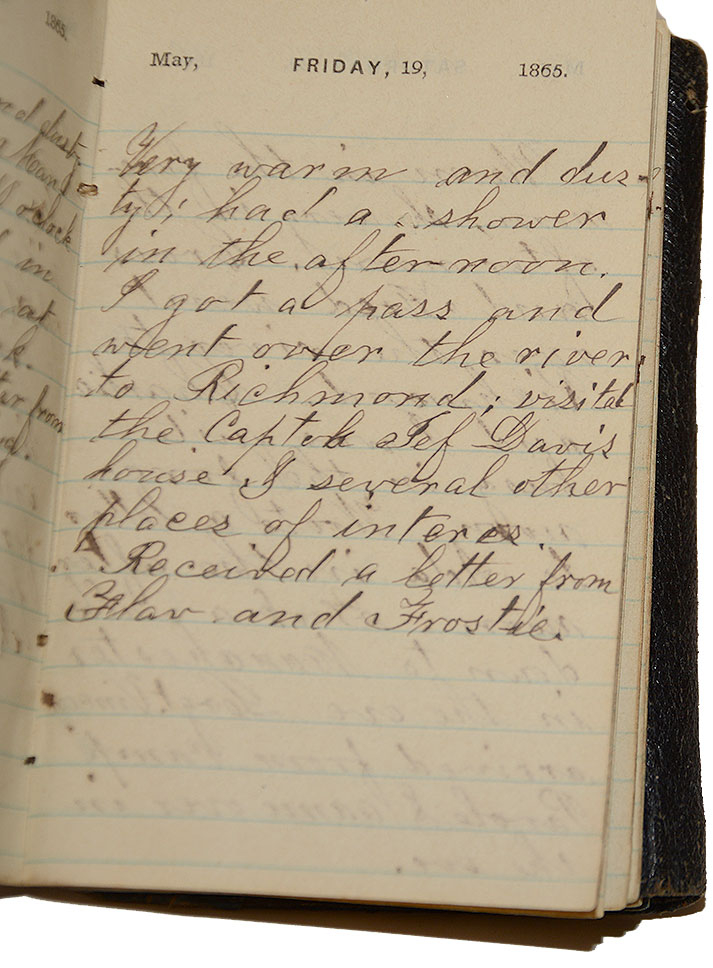 1865.
May, FRIDAY, 19, 1865.
Very warm and dus-
ty; had a shower
in the afternoon.
I got a pass and
went over the river
to Richmond; visited
the Captol Jef Davis
house & several other
places of interes.
Received a letter from
Flav and Frostie.
o'clock
in
at
from